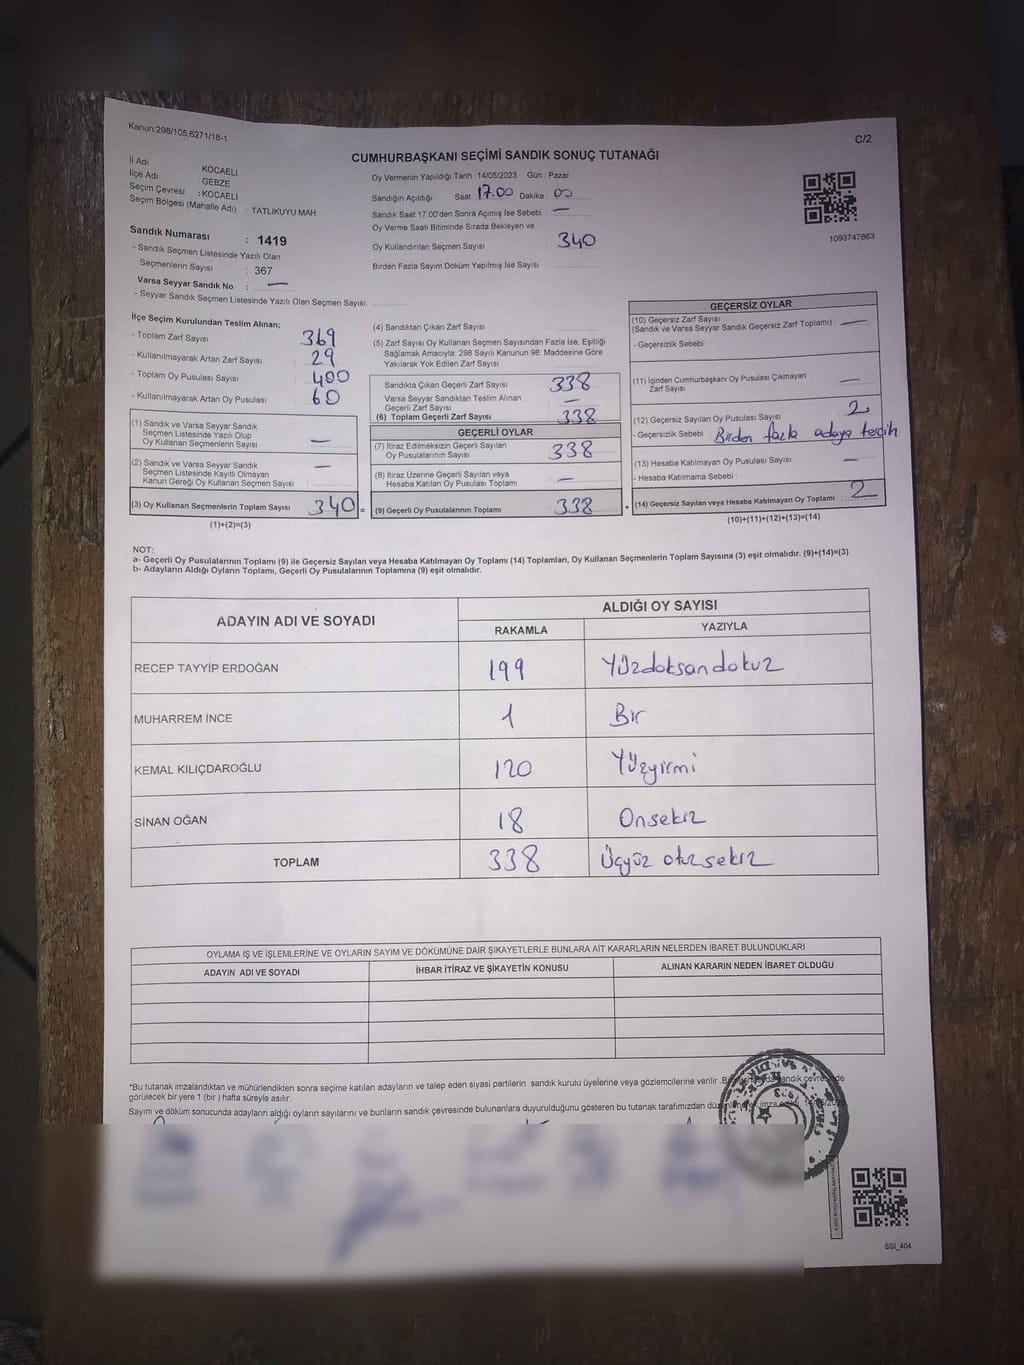 Kanun:298/105,6271/18-1
C/2
CUMHURBAŞKANI SEÇİMİ SANDIK SONUÇ TUTANAĞI
İl Adı : KOCAELİ
İlçe Adı : GEBZE
Seçim Çevresi : KOCAELİ
Seçim Bölgesi (Mahalle Adı) : TATLIKUYU MAH.
Sandık Numarası : 1419
- Sandık Seçmen Listesinde Yazılı Olan
Seçmenlerin Sayısı : 367
Varsa Seyyar Sandık No : —
- Seyyar Sandık Seçmen Listesinde Yazılı Olan Seçmen Sayısı:
Oy Vermenin Yapıldığı Tarih :14/05/2023 Gün : Pazar
Sandığın Açıldığı Saat 17.00 Dakika 00
Sandık Saat 17:00'den Sonra Açımış İse Sebebi : —
Oy Verme Saati Bitiminde Sırada Bekleyen ve
Oy Kullandırılan Seçmen Sayısı : 340
Birden Fazla Sayım Döküm Yapılmış İse Sayısı :
1093747863
İlçe Seçim Kurulundan Teslim Alınan;
- Toplam Zarf Sayısı : 369
- Kullanılmayarak Artan Zarf Sayısı : 29
- Toplam Oy Pusulası Sayısı : 400
- Kullanılmayarak Artan Oy Pusulası : 60
(1) Sandık ve Varsa Seyyar Sandık
Seçmen Listesinde Yazılı Olup
Oy Kullanan Seçmenlerin Sayısı : —
(2) Sandık ve Varsa Seyyar Sandık
Seçmen Listesinde Kayıtlı Olmayan
Kanun Gereği Oy Kullanan Seçmen Sayısı : —
(3) Oy Kullanan Seçmenlerin Toplam Sayısı : 340 =
(1)+(2)=(3)
(4) Sandıktan Çıkan Zarf Sayısı :
(5) Zarf Sayısı Oy Kullanan Seçmen Sayısından Fazla İse, Eşitliği
Sağlamak Amacıyla; 298 Sayılı Kanunun 98. Maddesine Göre
Yakılarak Yok Edilen Zarf Sayısı :
Sandıkta Çıkan Geçerli Zarf Sayısı : 338
Varsa Seyyar Sandıktan Teslim Alınan
Geçerli Zarf Sayısı : —
(6) Toplam Geçerli Zarf Sayısı : 338
GEÇERLİ OYLAR
(7) İtiraz Edilmeksizin Geçerli Sayılan
Oy Pusulalarının Sayısı : 338
(8) İtiraz Üzerine Geçerli Sayılan veya
Hesaba Katılan Oy Pusulası Toplamı : —
(9) Geçerli Oy Pusulalarının Toplamı : 338 +
GEÇERSİZ OYLAR
(10) Geçersiz Zarf Sayısı
(Sandık ve Varsa Seyyar Sandık Geçersiz Zarf Toplamı) : —
- Geçersizlik Sebebi :
(11) İçinden Cumhurbaşkanı Oy Pusulası Çıkmayan
Zarf Sayısı : —
(12) Geçersiz Sayılan Oy Pusulası Sayısı : 2
- Geçersizlik Sebebi : Birden fazla adaya tercih
(13) Hesaba Katılmayan Oy Pusulası Sayısı : —
- Hesaba Katılmama Sebebi :
(14) Geçersiz Sayılan veya Hesaba Katılmayan Oy Toplamı : 2
(10)+(11)+(12)+(13)=(14)
NOT:
a- Geçerli Oy Pusulalarının Toplamı (9) ile Geçersiz Sayılan veya Hesaba Katılmayan Oy Toplamı (14) Toplamları, Oy Kullanan Seçmenlerin Toplam Sayısına (3) eşit olmalıdır. (9)+(14)=(3)
b- Adayların Aldığı Oyların Toplamı, Geçerli Oy Pusulalarının Toplamına (9) eşit olmalıdır.
ADAYIN ADI VE SOYADI
ALDIĞI OY SAYISI
RAKAMLA YAZIYLA
RECEP TAYYİP ERDOĞAN 199 Yüzdoksandokuz
MUHARREM İNCE 1 Bir
KEMAL KILIÇDAROĞLU 120 Yüzyirmi
SİNAN OĞAN 18 Onsekiz
TOPLAM 338 Üçyüz otuzsekiz
OYLAMA İŞ VE İŞLEMLERİNE VE OYLARIN SAYIM VE DÖKÜMÜNE DAİR ŞİKAYETLERLE BUNLARA AİT KARARLARIN NELERDEN İBARET BULUNDUKLARI
ADAYIN ADI VE SOYADI İHBAR İTİRAZ VE ŞİKAYETİN KONUSU ALINAN KARARIN NEDEN İBARET OLDUĞU
*Bu tutanak imzalandıktan ve mühürlendikten sonra seçime katılan adayların ve talep eden siyasi partilerin sandık kurulu üyelerine veya gözlemcilerine verilir. sandık çevresinde
görülecek bir yere 1 (bir ) hafta süreyle asılır.
Sayım ve döküm sonucunda adayların aldığı oyların sayılarını ve bunların sandık çevresinde bulunanlara duyurulduğunu gösteren bu tutanak tarafımızdan
SSI_404